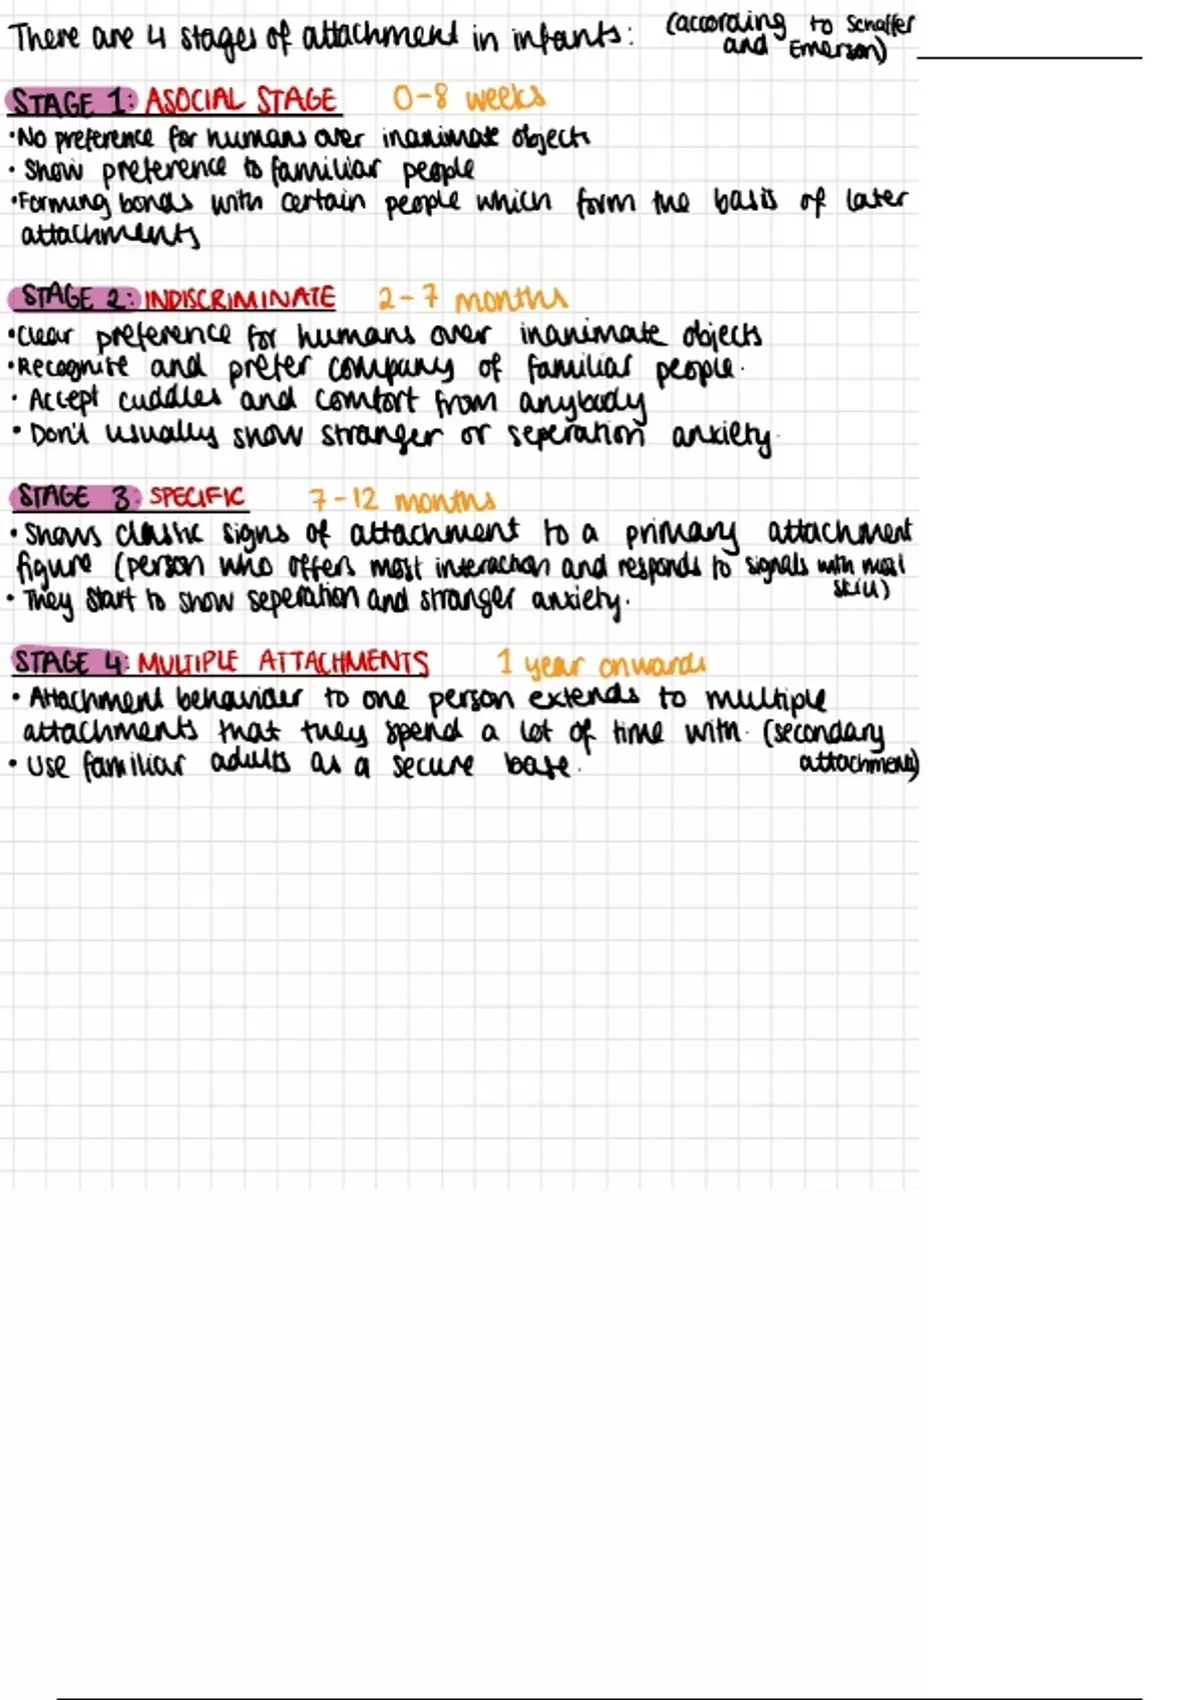 There are 4 stages of attachment in infants: (according to Schaffer
and Emerson)
STAGE 1: ASOCIAL STAGE 0-8 weeks
• No preference for humans over inanimate objects
• Show preference to familiar people
• Forming bonds with certain people which form the basis of later
attachments
STAGE 2: INDISCRIMINATE 2-7 months
• Clear preference for humans over inanimate objects
• Recognise and prefer company of familiar people.
• Accept cuddles and comfort from anybody
• Don't usually show stranger or seperation anxiety.
STAGE 3: SPECIFIC 7-12 months
• Shows classic signs of attachment to a primary attachment
figure (person who offers most interaction and responds to signals with most
skill)
• They start to show seperation and stranger anxiety.
STAGE 4: MULTIPLE ATTACHMENTS 1 year onwards
• Attachment behaviour to one person extends to multiple
attachments that they spend a lot of time with. (secondary
attachments)
• Use familiar adults as a secure base.